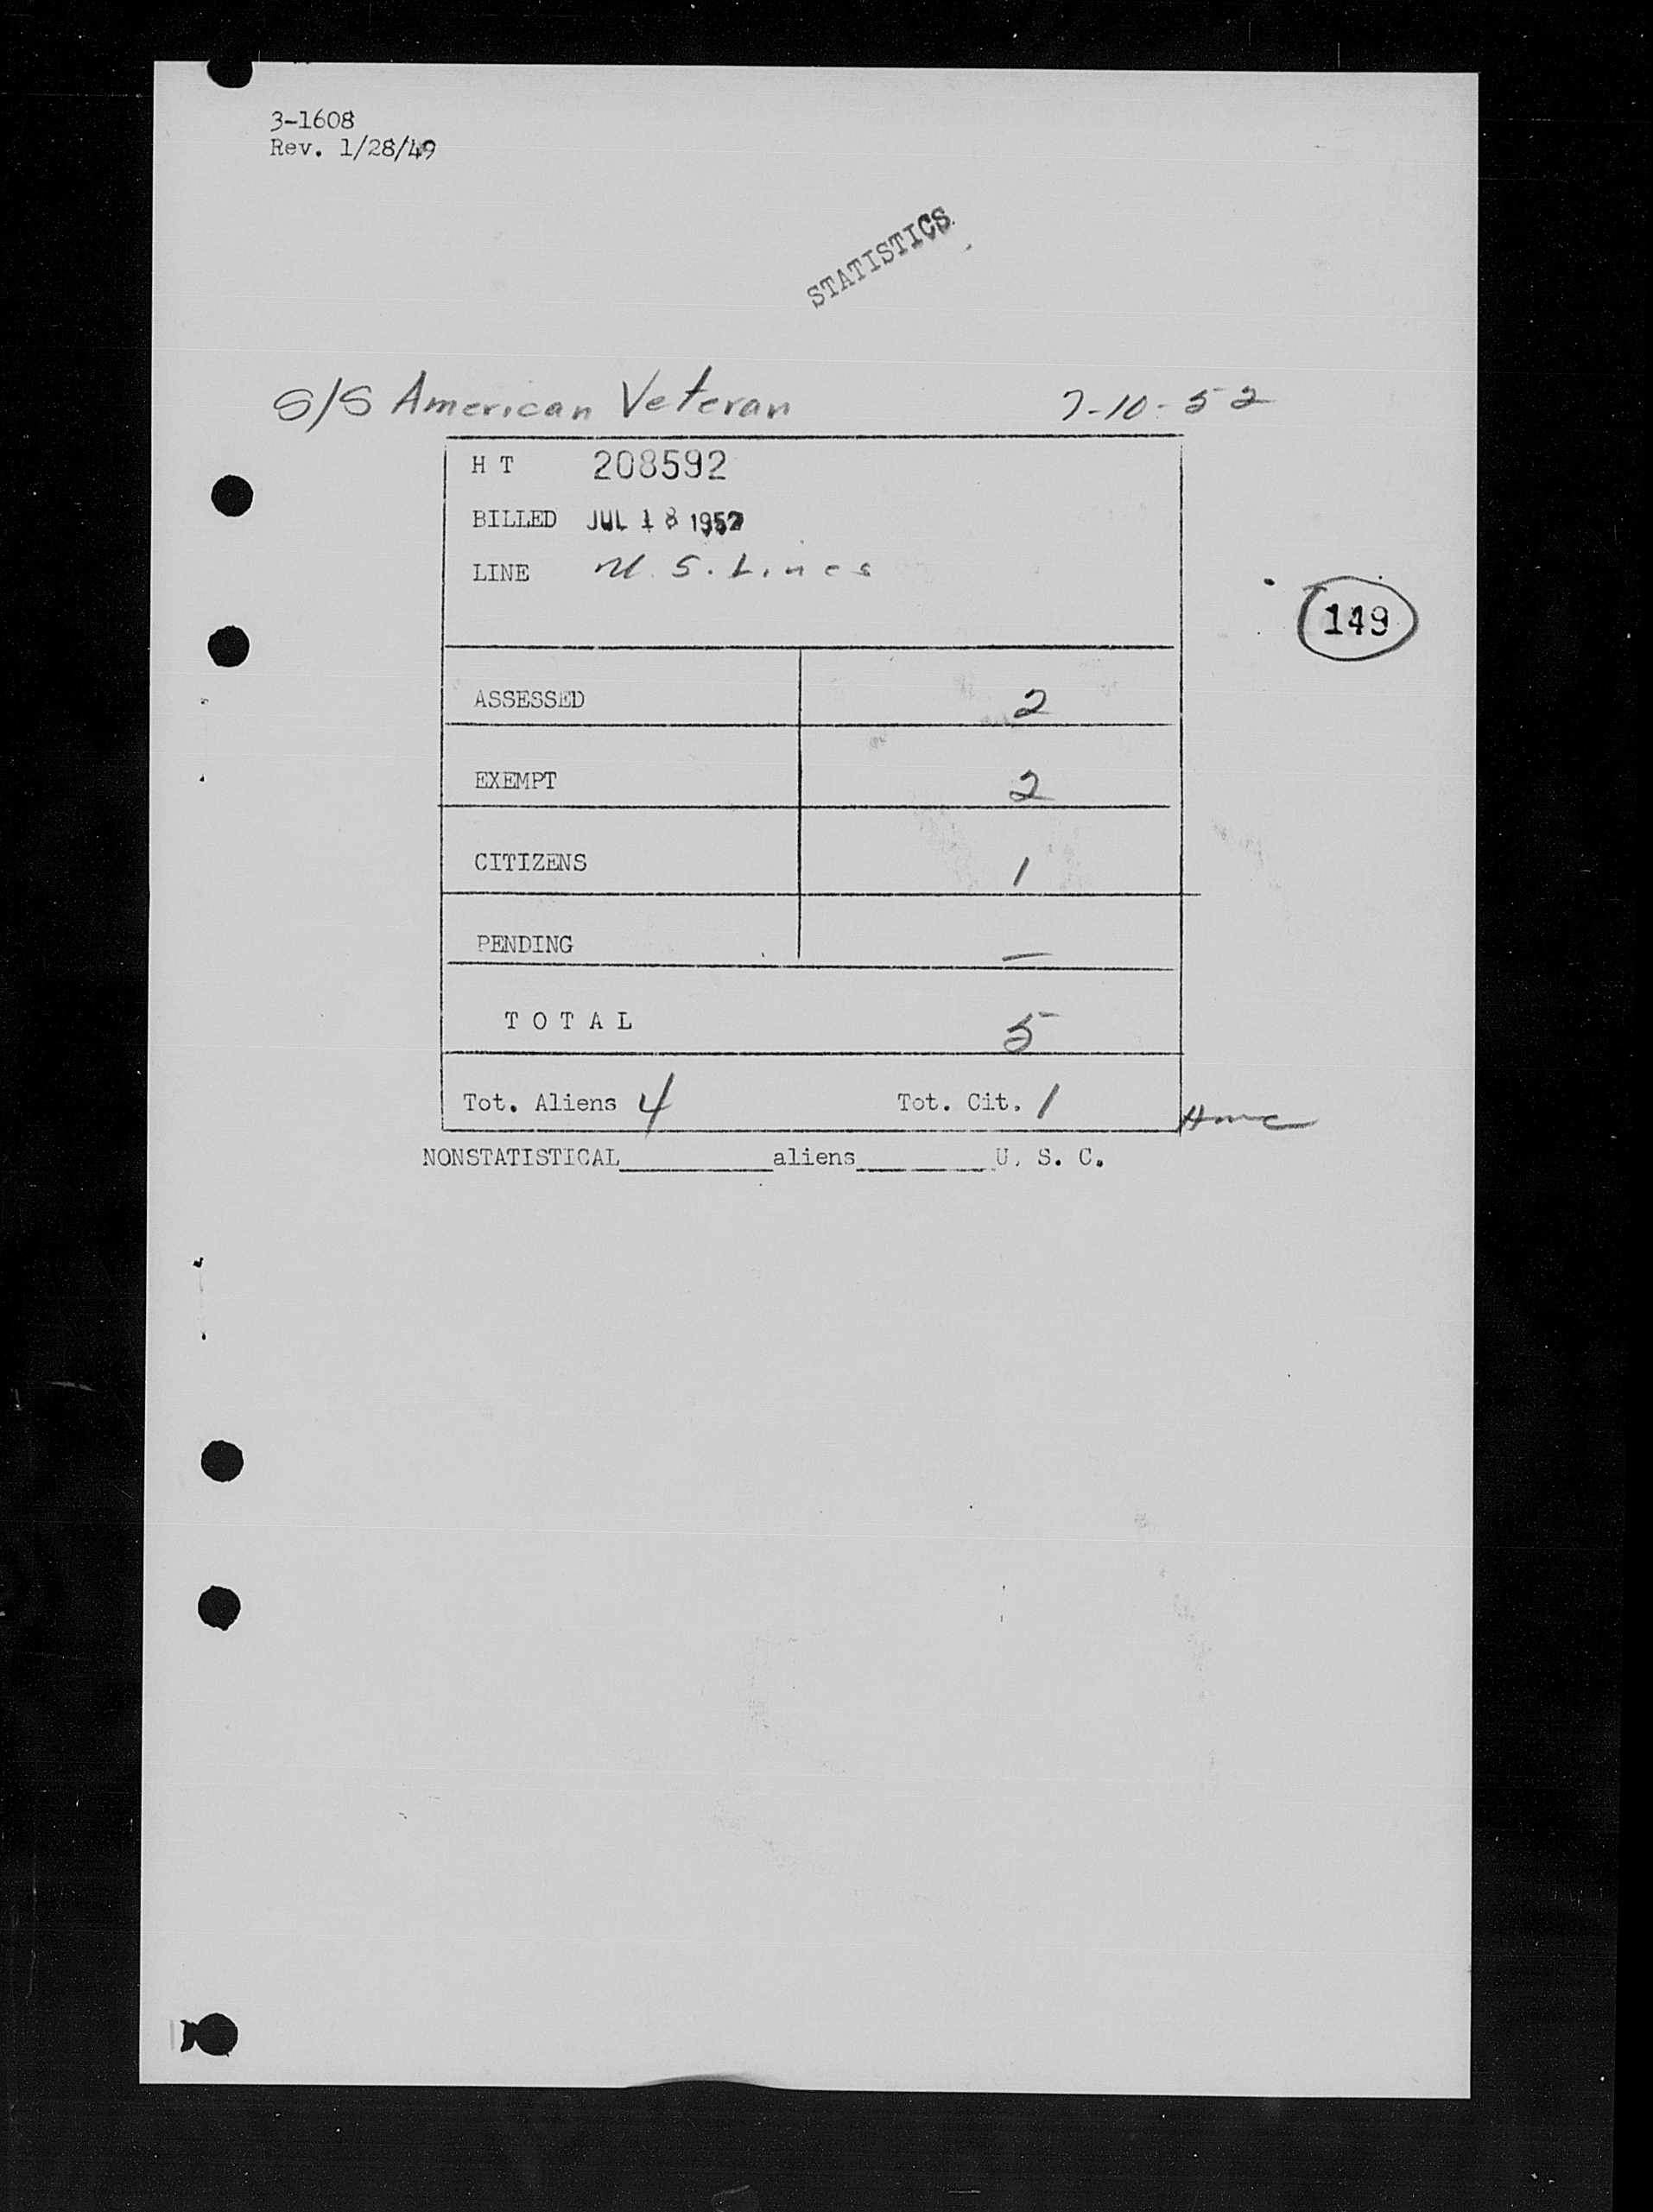 3-1608
Rev. 1/28/49
STATISTICS
S/S American Veteran 7-10-52
H T 208592
BILLED JUL 18 1952
LINE U.S. Lines
149
ASSESSED 2
EXEMPT 2
CITIZENS 1
PENDING —
T O T A L 5
Tot. Aliens 4 Tot. Cit. 1
NONSTATISTICAL__________aliens_________U. S. C.